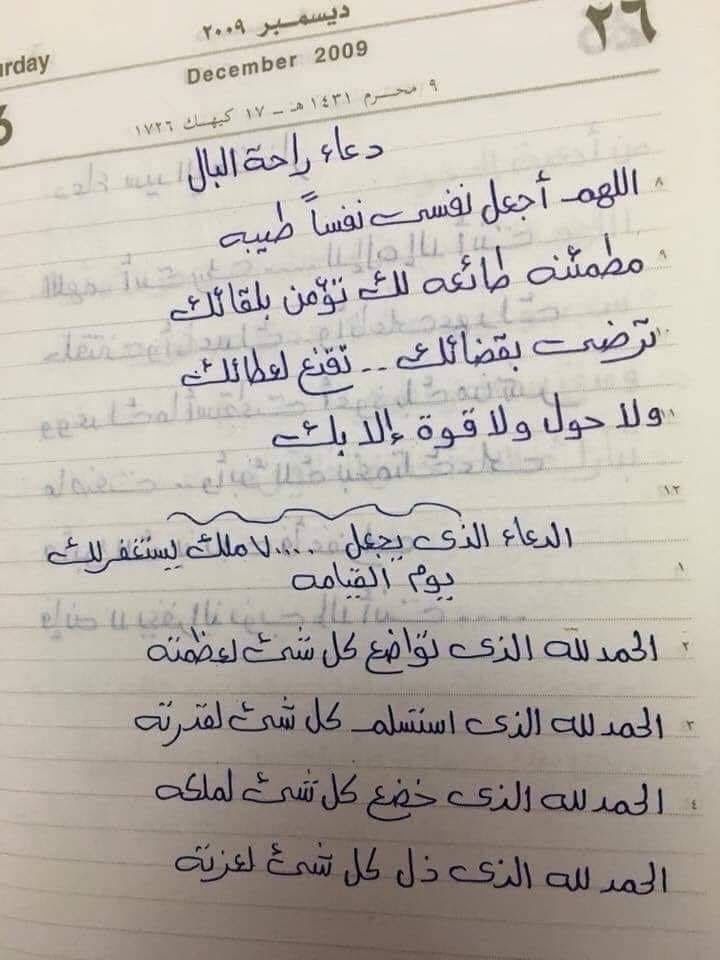 ديسمبر ٢٠٠٩
٢٦
rday
December 2009
٩ محرم ١٤٣١ هـ - ١٧ كيهك ١٧٢٦
6
دعاء راحة البال
٨
اللهم أجعل نفسى نفساً طيبه
٩
مطمئنه طائعه لك تؤمن بلقائك
ترضى بقضائك .. تقنع لعطائك
ولا حول ولا قوة إلا بك
١٢
الدعاء الذى يجعل ..... ملك يستغفر لك
١
يوم القيامه
٢
الحمد لله الذى تواضع كل شئ لعظمته
٣
الحمد لله الذى استسلم كل شئ لقدرته
٤
الحمد لله الذى خضع كل شئ لملكه
الحمد لله الذى ذل كل شئ لعزته